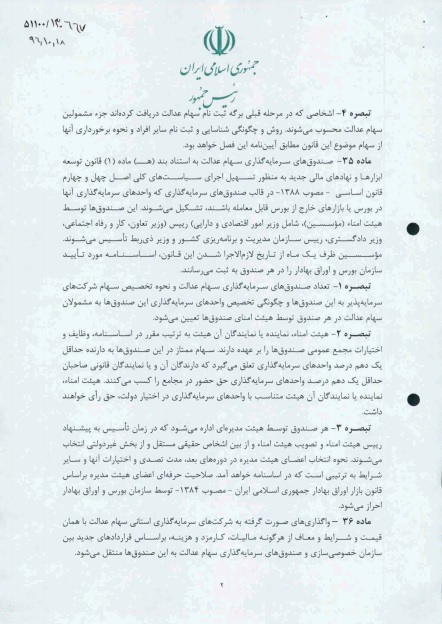 ۵۱۱۰۰/۱۴۰۶۶۷
۹۶,۱۰,۱۸
جمهوری اسلامی ایران
رئیس جمهور
تبصره ۴- اشخاصی که در مرحله قبلی برگه ثبت نام سهام عدالت دریافت کرده‌اند جزء مشمولین
سهام عدالت محسوب می‌شوند. روش و چگونگی شناسایی و ثبت نام سایر افراد و نحوه برخورداری آنها
از سهام موضوع این قانون مطابق آیین‌نامه این فصل خواهد بود.
ماده ۳۵- صندوق‌های سرمایه‌گذاری سهام عدالت به استناد بند (هـ) ماده (۱) قانون توسعه
ابزارها و نهادهای مالی جدید به منظور تسهیل اجرای سیاست‌های کلی اصل چهل و چهارم
قانون اساسی - مصوب ۱۳۸۸- در قالب صندوق‌های سرمایه‌گذاری که واحدهای سرمایه‌گذاری آنها
در بورس یا بازارهای خارج از بورس قابل معامله باشند، تشکیل می‌شوند. این صندوق‌ها توسط
هیئت امناء (مؤسسین)، شامل وزیر امور اقتصادی و دارایی (رییس) وزیر تعاون، کار و رفاه اجتماعی،
وزیر دادگستری، رییس سازمان مدیریت و برنامه‌ریزی کشور و وزیر ذی‌ربط تأسیس می‌شوند.
مؤسسین ظرف یک ماه از تاریخ لازم‌الاجرا شدن این قانون، اساسنامه مورد تأیید
سازمان بورس و اوراق بهادار را در هر صندوق به ثبت می‌رسانند.
تبصره ۱- تعداد صندوق‌های سرمایه‌گذاری سهام عدالت و نحوه تخصیص سهام شرکت‌های
سرمایه‌پذیر به این صندوق‌ها و چگونگی تخصیص واحدهای سرمایه‌گذاری این صندوق‌ها به مشمولان
سهام عدالت در هر صندوق توسط هیئت امنای صندوق‌ها تعیین می‌شود.
تبصره ۲- هیئت امناء، نماینده یا نمایندگان آن هیئت به ترتیب مقرر در اساسنامه، وظایف و
اختیارات مجمع عمومی صندوق‌ها را بر عهده دارند. سهام ممتاز در این صندوق‌ها به دارنده حداقل
یک دهم درصد واحدهای سرمایه‌گذاری تعلق می‌گیرد که دارندگان آن و یا نمایندگان قانونی صاحبان
حداقل یک دهم درصد واحدهای سرمایه‌گذاری حق حضور در مجامع را کسب می‌کنند. هیئت امناء،
نماینده یا نمایندگان آن هیئت متناسب با واحدهای سرمایه‌گذاری در اختیار دولت، حق رأی خواهند
داشت.
تبصره ۳- هر صندوق توسط هیئت مدیره‌ای اداره می‌شود که در زمان تأسیس به پیشنهاد
رییس هیئت امناء و تصویب هیئت امناء و از بین اشخاص حقیقی مستقل و از بخش غیردولتی انتخاب
می‌شوند. نحوه انتخاب اعضای هیئت مدیره در دوره‌های بعد، مدت تصدی و اختیارات آنها و سایر
شرایط به ترتیبی است که در اساسنامه خواهد آمد. صلاحیت حرفه‌ای اعضای هیئت مدیره براساس
قانون بازار اوراق بهادار جمهوری اسلامی ایران - مصوب ۱۳۸۴- توسط سازمان بورس و اوراق بهادار
احراز می‌شود.
ماده ۳۶ - واگذاری‌های صورت گرفته به شرکت‌های سرمایه‌گذاری استانی سهام عدالت با همان
قیمت و شرایط و معاف از هرگونه مالیات، کارمزد و هزینه، براساس قراردادهای جدید بین
سازمان خصوصی‌سازی و صندوق‌های سرمایه‌گذاری سهام عدالت به این صندوق‌ها منتقل می‌شود.
۲